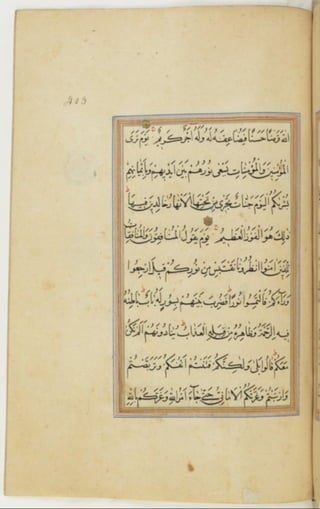 الله قَرْضًا حَسَنًا فَيُضَاعِفَهُ لَهُ وَلَهُ أَجْرٌ كَرِيمٌ يَوْمَ تَرَى
الْمُؤْمِنِينَ وَالْمُؤْمِنَاتِ يَسْعَى نُورُهُمْ بَيْنَ أَيْدِيهِمْ وَبِأَيْمَانِهِمْ
بُشْرَاكُمُ الْيَوْمَ جَنَّاتٌ تَجْرِي مِنْ تَحْتِهَا الْأَنْهَارُ خَالِدِينَ فِيهَا
ذَلِكَ هُوَ الْفَوْزُ الْعَظِيمُ يَوْمَ يَقُولُ الْمُنَافِقُونَ وَالْمُنَافِقَاتُ
لِلَّذِينَ آمَنُوا انْظُرُونَا نَقْتَبِسْ مِنْ نُورِكُمْ قِيلَ ارْجِعُوا
وَرَاءَكُمْ فَالْتَمِسُوا نُورًا فَضُرِبَ بَيْنَهُمْ بِسُورٍ لَهُ بَابٌ بَاطِنُهُ
فِيهِ الرَّحْمَةُ وَظَاهِرُهُ مِنْ قِبَلِهِ الْعَذَابُ يُنَادُونَهُمْ أَلَمْ نَكُنْ
مَعَكُمْ قَالُوا بَلَى وَلَكِنَّكُمْ فَتَنْتُمْ أَنْفُسَكُمْ وَتَرَبَّصْتُمْ
وَارْتَبْتُمْ وَغَرَّتْكُمُ الْأَمَانِيُّ حَتَّى جَاءَ أَمْرُ اللهِ وَغَرَّكُمْ بِاللهِ